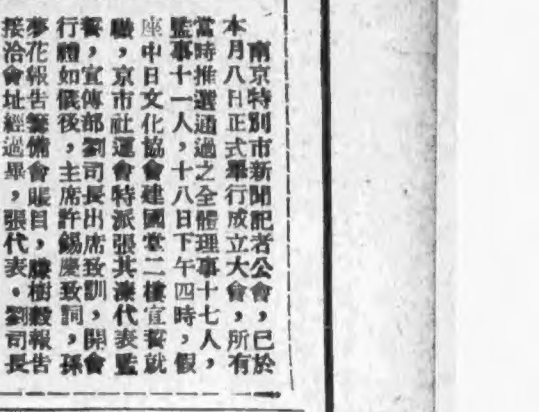 南京特別市新聞記者公會，已於
本月八日正式舉行成立大會，所有
當時推選通過之全體理事十七人，
監事十一人，十八日下午四時，假
座中日文化協會建國堂二樓宣誓就
職，京市社運會特派張其濂代表監
誓，宣傳部劉司長出席致訓，開會
行禮如儀後，主席許錫慶致詞，孫
夢花報告籌備會賬目，滕樹穀報告
接洽會址經過畢，張代表，劉司長